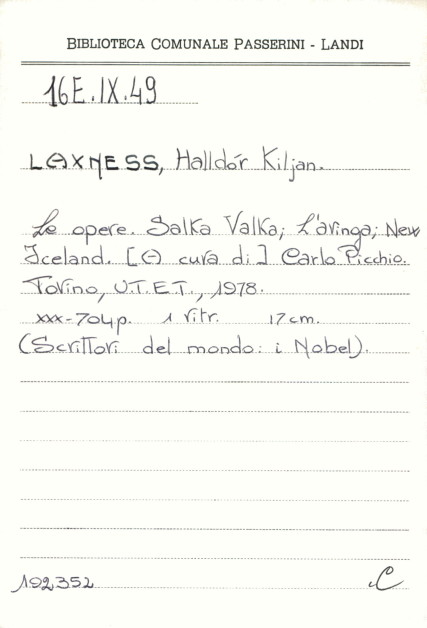 BIBLIOTECA COMUNALE PASSERINI - LANDI
16E.IX.49
LAXNESS, Halldór Kiljan.
Le opere. Salka Valka; L'aringa; New
Iceland. [A cura di] Carlo Picchio.
Torino, U.T.E.T., 1978.
xxx-704p. 1 ritr. 17cm.
(Scrittori del mondo: i Nobel).
192352 C